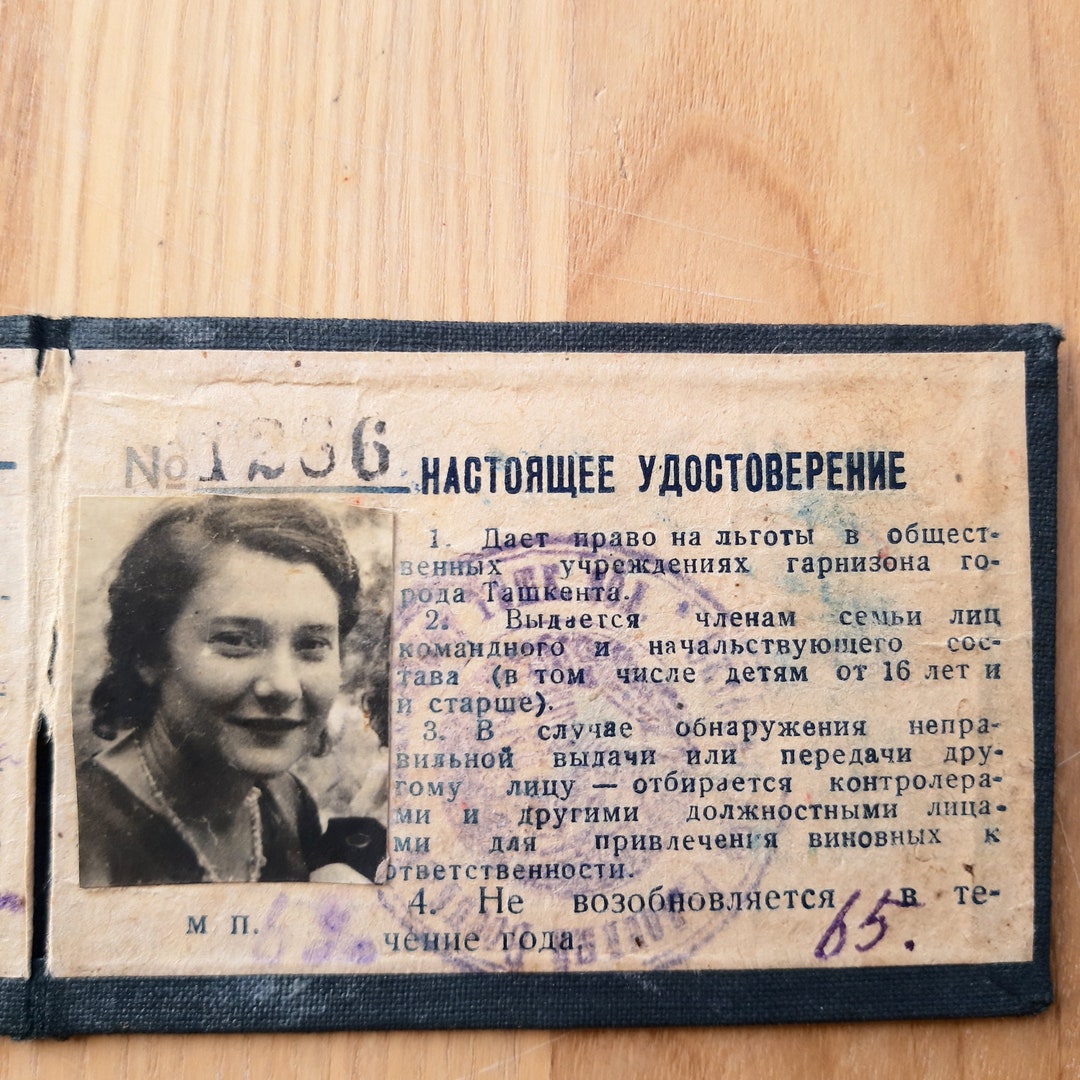 № 1236
НАСТОЯЩЕЕ УДОСТОВЕРЕНИЕ
1. Дает право на льготы в общест-
венных учреждениях гарнизона го-
рода Ташкента.
2. Выдается членам семьи лиц
командного и начальствующего сос-
тава (в том числе детям от 16 лет и
и старше).
3. В случае обнаружения непра-
вильной выдачи или передачи дру-
гому лицу — отбирается контролера-
ми и другими должностными лица-
ми для привлечения виновных к
ответственности.
4. Не возобновляется в те-
чение года.
м п.
65.